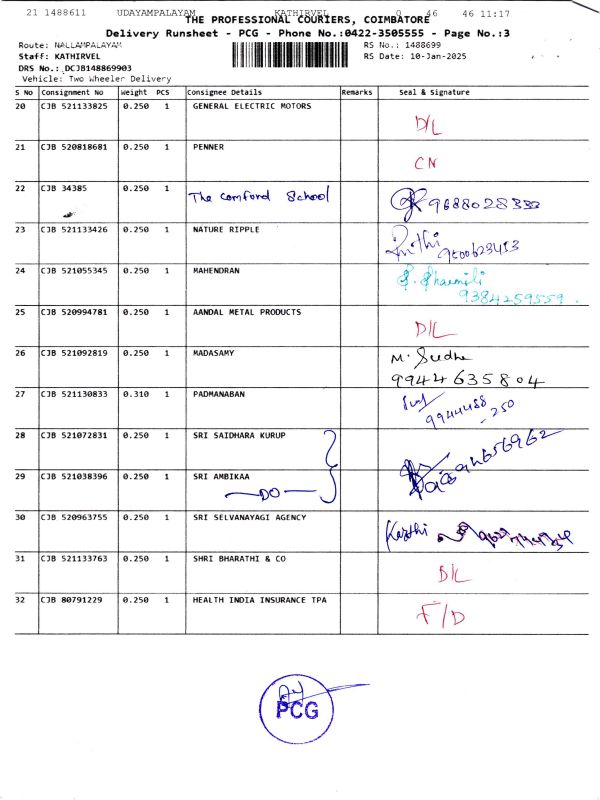 21 1488611 UDAYAMPALAYAM KATHIRVEL 0 46 46 11:17
THE PROFESSIONAL COURIERS, COIMBATORE
Delivery Runsheet - PCG - Phone No.:0422-3505555 - Page No.:3
Route: NALLAMPALAYAM RS No.: 1488699
Staff: KATHIRVEL RS Date: 10-Jan-2025
DRS No.: DCJB148869903
Vehicle: Two Wheeler Delivery
S No Consignment No Weight PCS Consignee Details Remarks Seal & Signature
20 CJB 521133825 0.250 1 GENERAL ELECTRIC MOTORS D/L
21 CJB 520818681 0.250 1 PENNER CN
22 CJB 34385 0.250 1 The Comford School 9688028333
23 CJB 521133426 0.250 1 NATURE RIPPLE
24 CJB 521055345 0.250 1 MAHENDRAN
9384259559.
25 CJB 520994781 0.250 1 AANDAL METAL PRODUCTS D/L
26 CJB 521092819 0.250 1 MADASAMY M. Sudha
9944635804
27 CJB 521130833 0.310 1 PADMANABAN
9944488-250
28 CJB 521072831 0.250 1 SRI SAIDHARA KURUP
29 CJB 521038396 0.250 1 SRI AMBIKAA
DO
30 CJB 520963755 0.250 1 SRI SELVANAYAGI AGENCY Karthi
31 CJB 521133763 0.250 1 SHRI BHARATHI & CO D/L
32 CJB 80791229 0.250 1 HEALTH INDIA INSURANCE TPA F/D
PCG